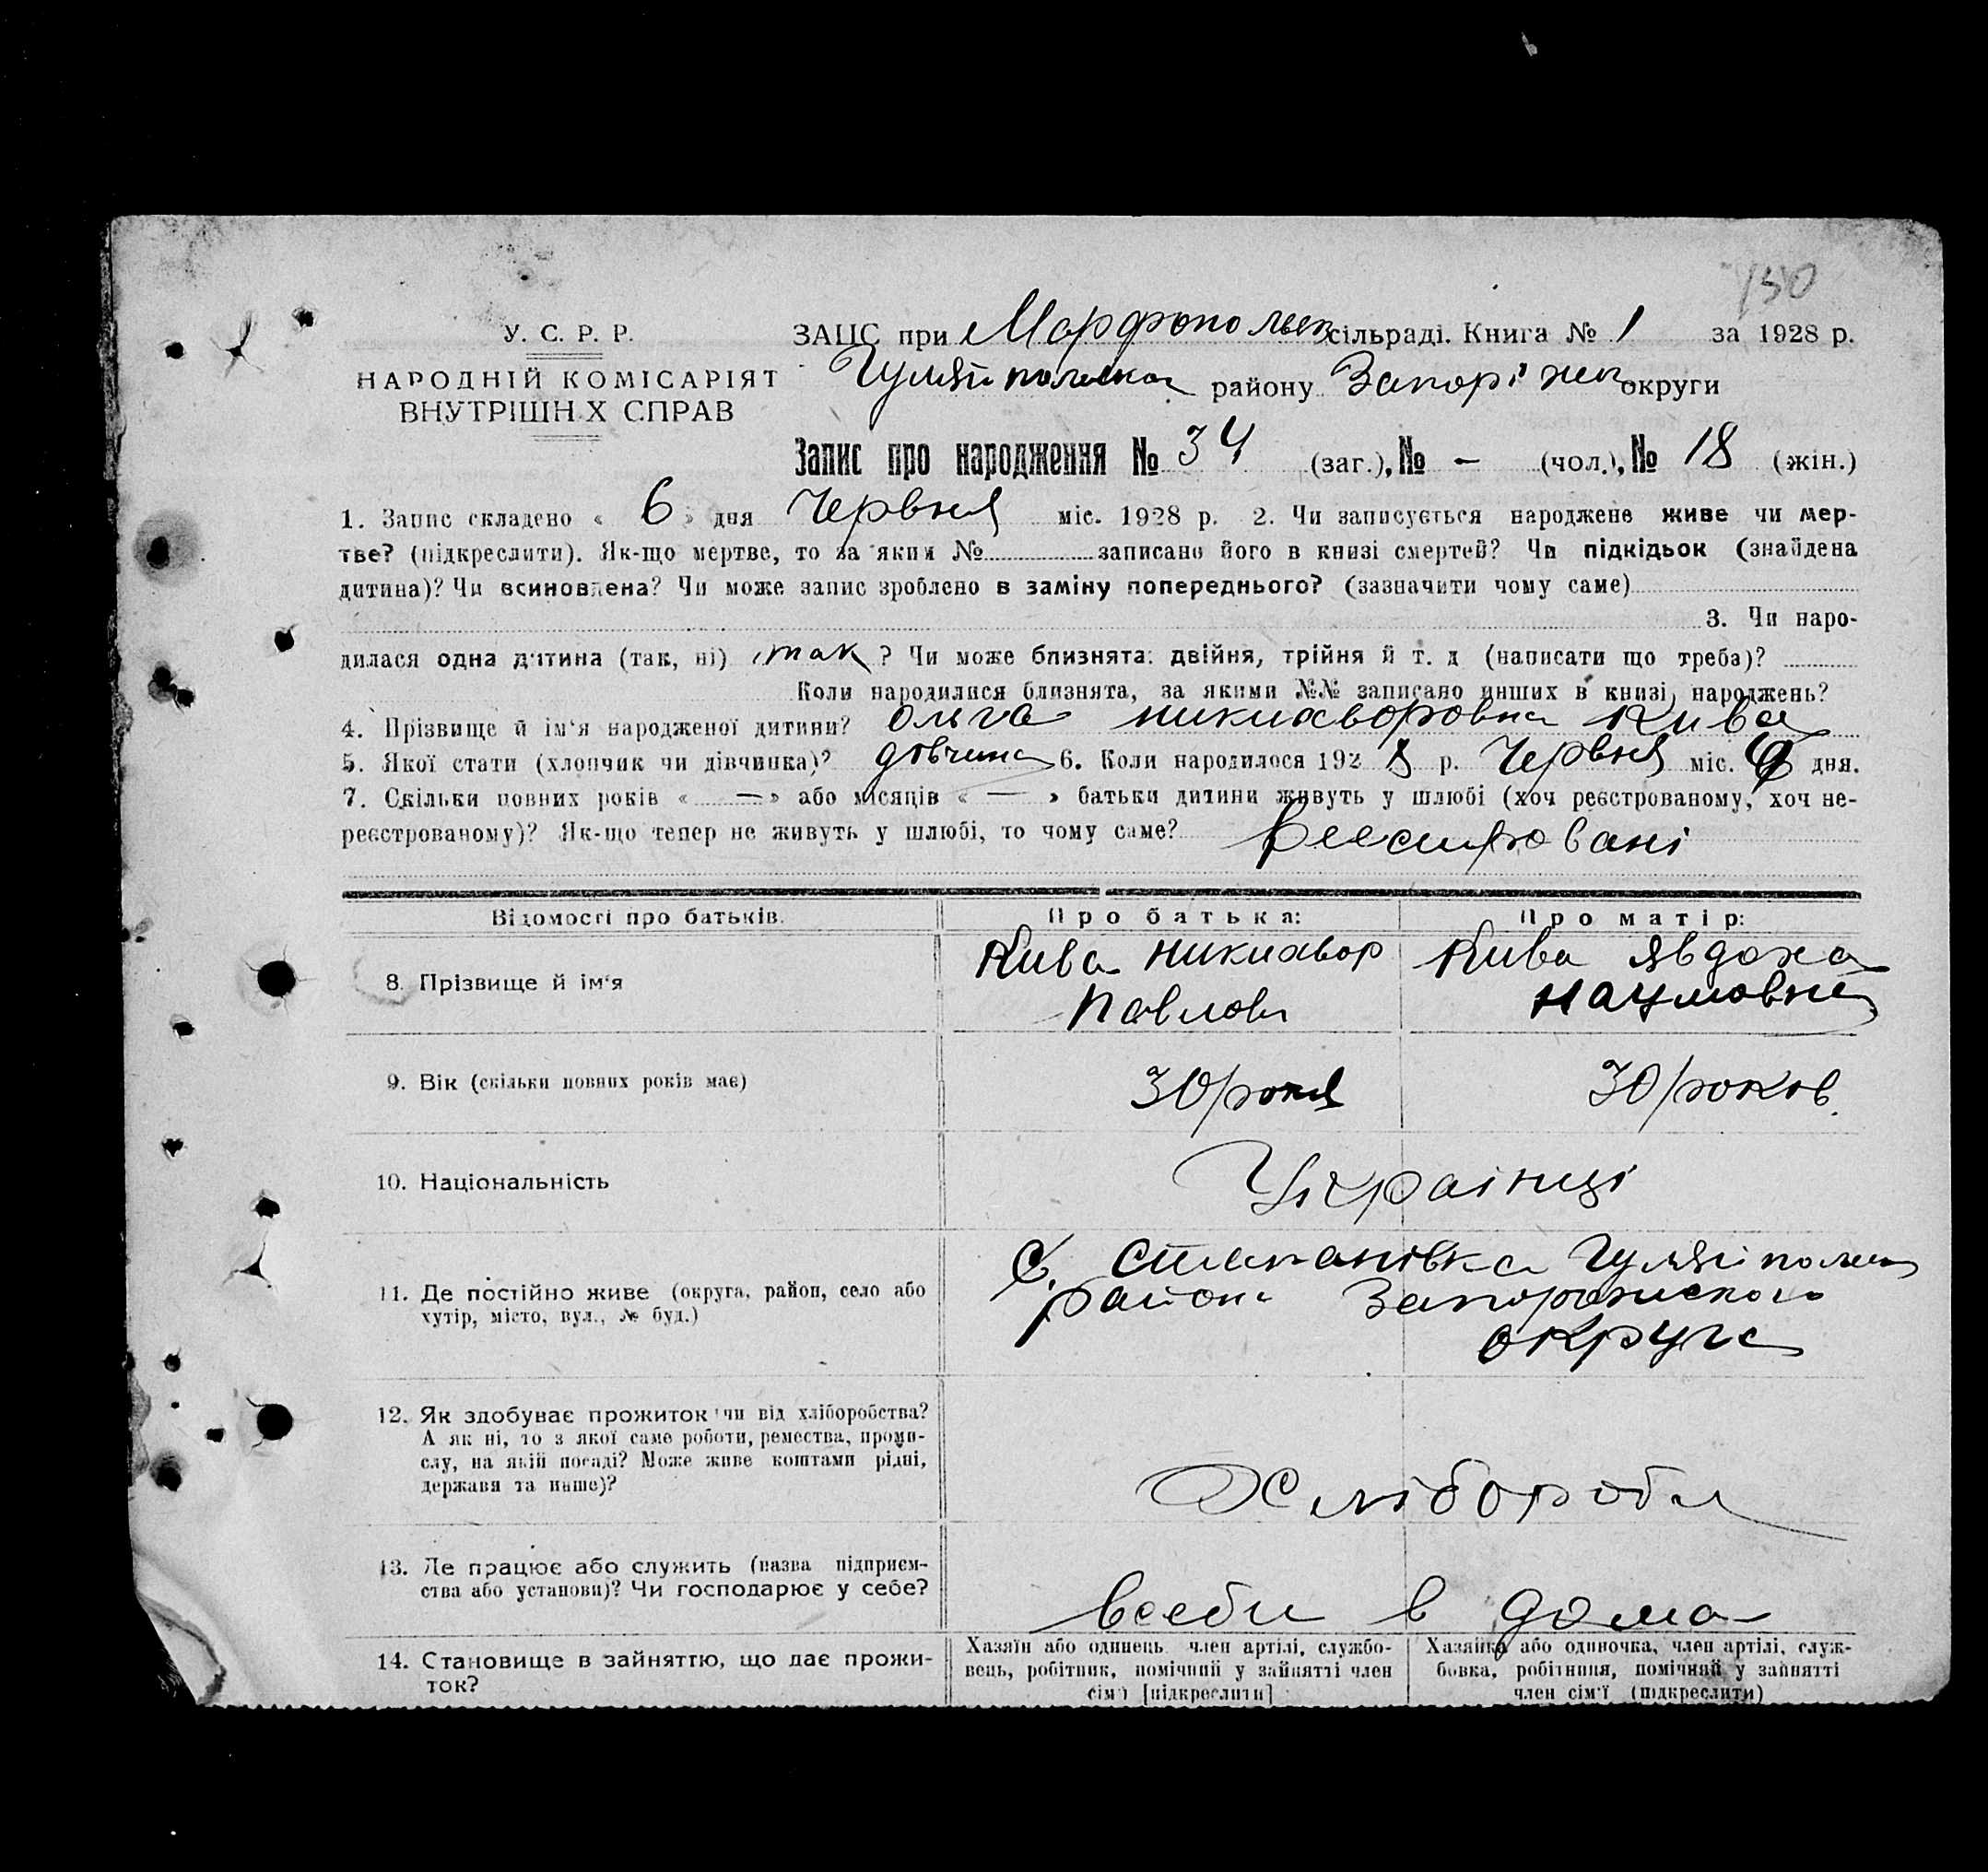 150
У. С. Р. Р.
НАРОДНІЙ КОМІСАРІЯТ
ВНУТРІШН Х СПРАВ
ЗАЦС при Марфопольск сільраді. Книга № 1 за 1928 р.
Гуляйпольска району Запоріжск округи
Запис про народження № 34 (заг.), № - (чол.), № 18 (жін.)
1. Запис складено « 6 » дня Червня міс. 1928 р. 2. Чи записується народжене живе чи мер-
тве? (підкреслити). Як-що мертве, то за яким № записано його в книзі смертей? Чи підкідьок (знайдена
дитина)? Чи всиновлена? Чи може запис зроблено в заміну попереднього? (зазначити чому саме)
3. Чи наро-
дилася одна дитина (так, ні) так ? Чи може близнята: двійня, трійня й т. д (написати що треба)?
Коли народилися близнята, за якими №№ записано инших в книзі народжень?
4. Прізвище й ім'я народженої дитини? Ольга Никихворовна Кива
5. Якої стати (хлопчик чи дівчинка)? 6. Коли народилося 192 8 р. Червня міс. дня.
7. Скільки повних років « — » або місяців « — » батьки дитини живуть у шлюбі (хоч реєстрованому, хоч не-
реєстрованому)? Як-що тепер не живуть у шлюбі, то чому саме?
Відомості про батьків.
Про батька:
Про матір:
8. Прізвище й ім'я
Кива Никихвор
Павлов
Кива Явдоха
Наумовна
9. Вік (скільки повних років має)
30 рокив
30 роков.
10. Національність
Українці
11. Де постійно живе (округа, район, село або
хутір, місто, вул., № буд.)
С. Степанівка Гуляйполск
района Запорожского
округа
12. Як здобуває прожиток чи від хліборобства?
А як ні, то з якої саме роботи, ремества, проми-
слу, на якій посаді? Може живе коштами рідні,
держави та инше)?
Хлібороби
13. Де працює або служить (назва підприєм-
ства або установи)? Чи господарює у себе?
всеби в дома
14. Становище в зайняттю, що дає прожи-
ток?
Хазяїн або одинець член артілі, службо-
вець, робітник, помічний у зайнятті член
сім'ї [підкреслити]
Хазяйка або одиночка, член артілі, служ-
бовка, робітниця, помічний у зайнятті
член сім'ї (підкреслити)